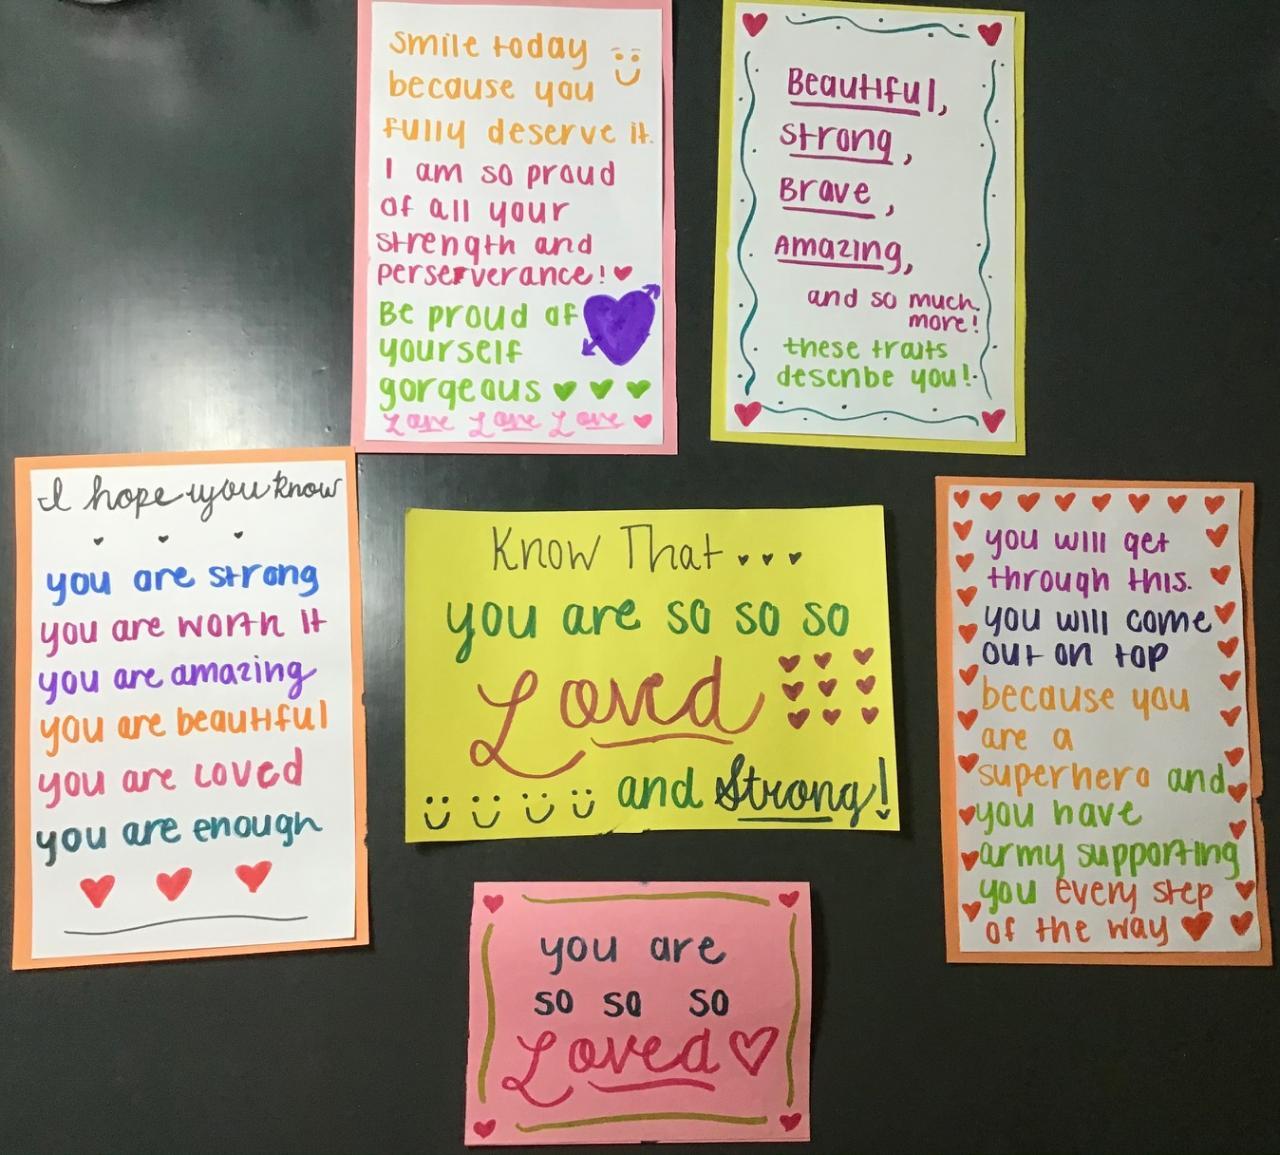 smile today
because you
fully deserve it.
I am so proud
of all your
strength and
perserverance!
Be proud of
yourself
gorgeous
Love Love Love
Beautiful,
strong,
Brave,
Amazing,
and so much
more!
these traits
describe you!
I hope you know
you are strong
you are worth it
you are amazing
you are beautiful
you are loved
you are enough
Know That...
you are so so so
Loved
and Strong!
you will get
through this.
you will come
out on top
because you
are a
superhero and
you have
army supporting
you every step
of the way
you are
so so so
Loved